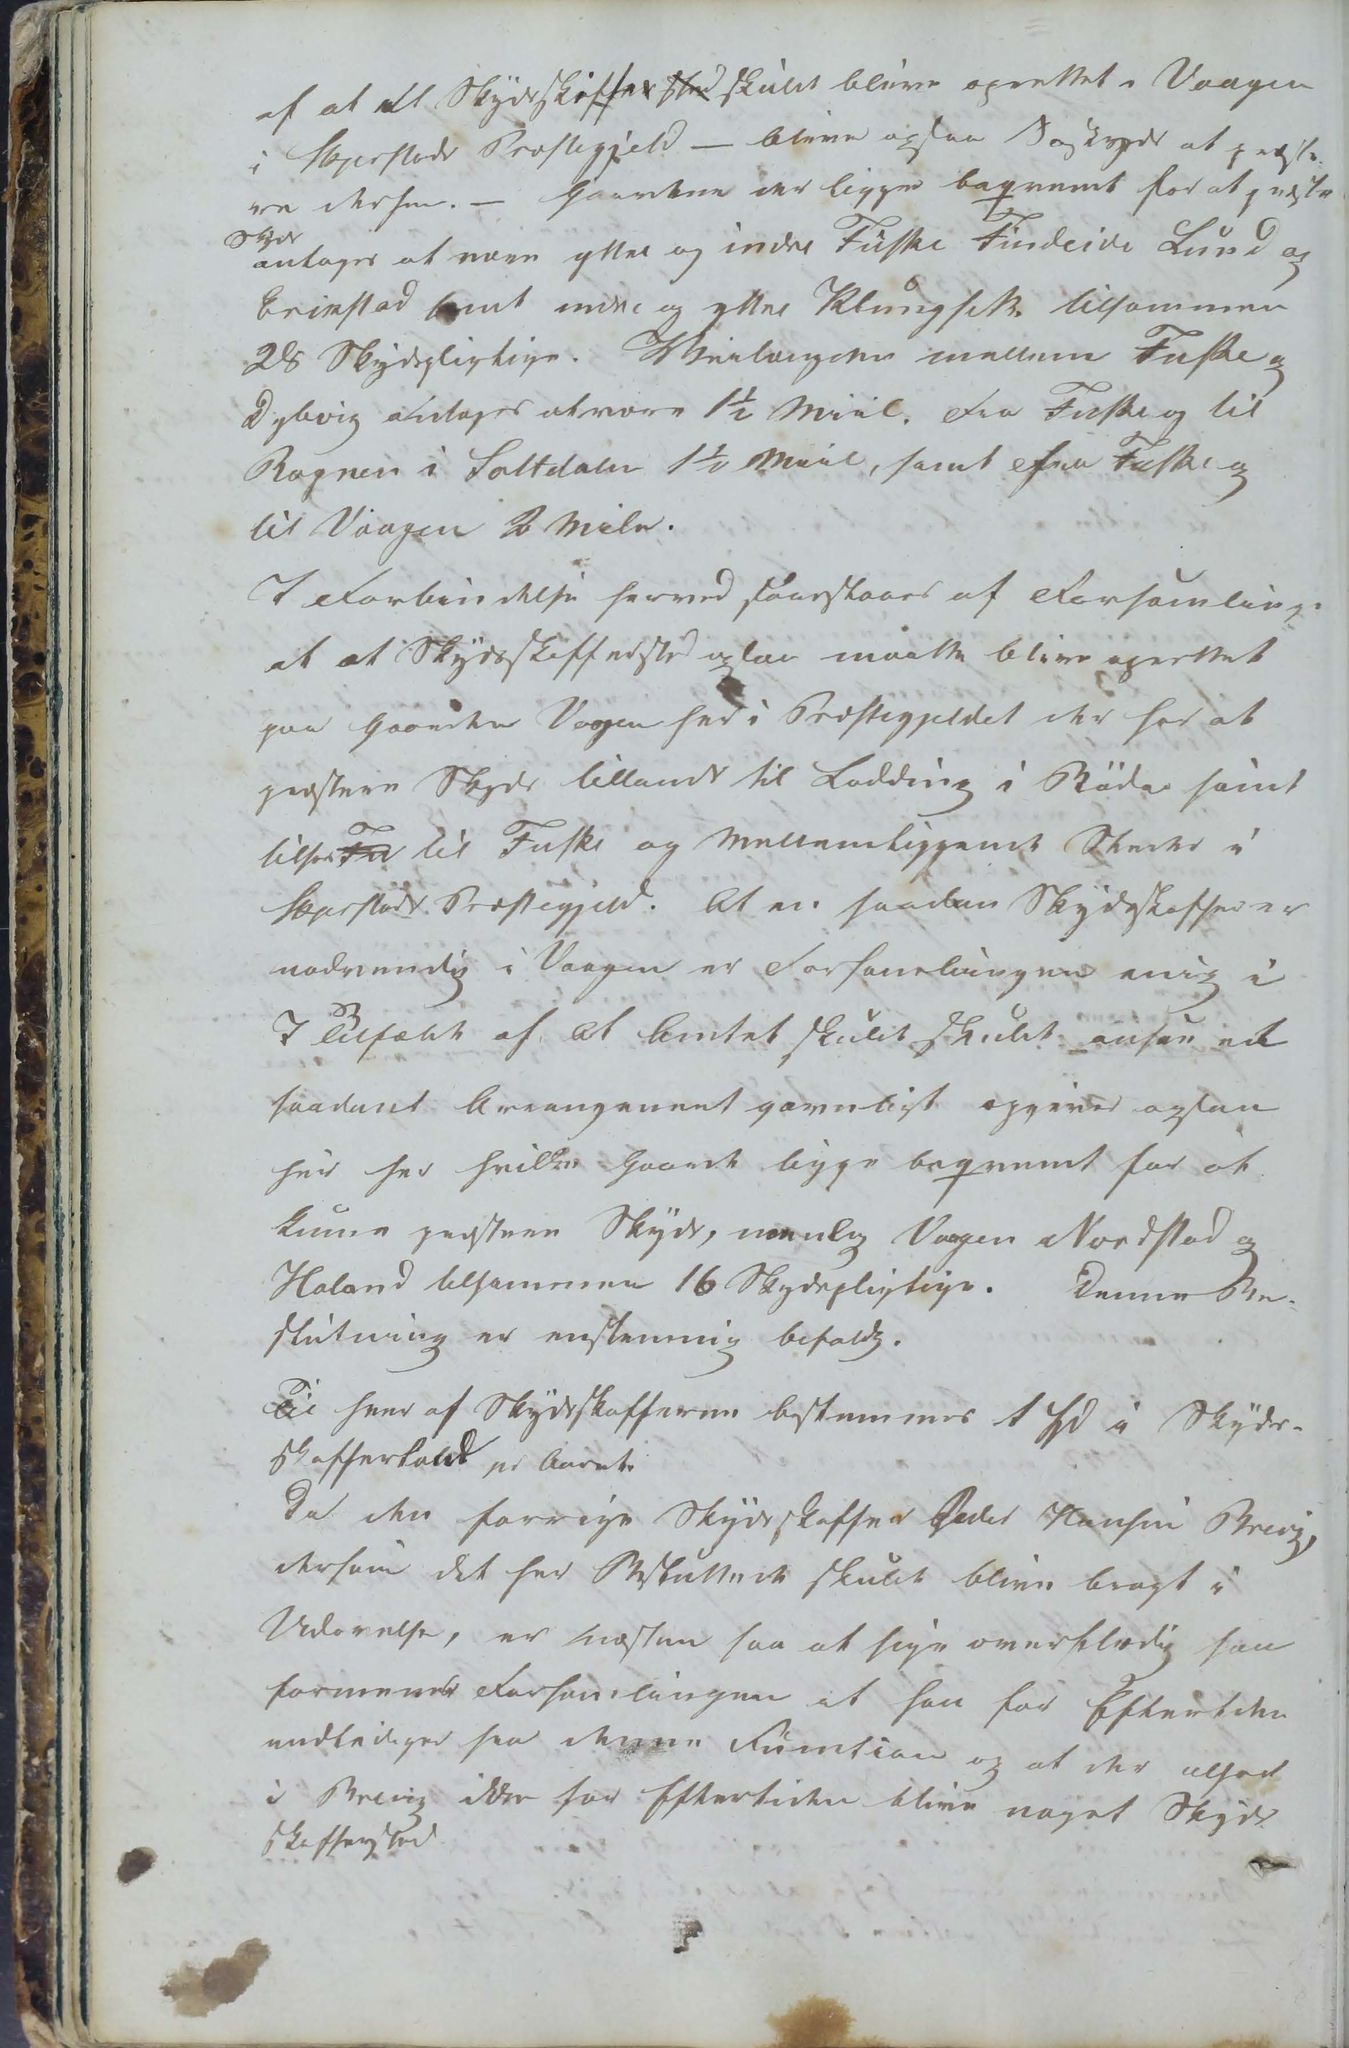 af at et Skydsskaffer sted skulde blive oprettet i Vaagen
i Skjerstads Præstegjeld — bliver ogsaa Søskyds at præste-
re dersen. — Gaardene der ligge beqvemt for at præstere
Skyds
antages at være yttre og indre Fuske Findeide Lund og
Erikstad samt indre og yttre Klungset tilsammen
28 Skydspligtige. Veilængden mellem Fuske og
Dybvig antages at være 1½ Miil. Fra Fuske og til
Rognen i Saltdalen 1½ Miil, samt fra Fuske og
til Vaagen 2 Mile.
I Forbindelse herved foreslaaes af Forsamlingen
at et Skydsskaffersted ogsaa maatte blive oprettet
paa Gaarden Vagen her i Præstegjeldet der har at
præstere Skyds tillands til Lødding i Bodø samt
tilsøes Fu til Fuske og mellemliggende Steder i
Skjerstads Præstegjeld. At en saadan Skydsskaffer er
nødvendig i Vaagen er Forsamlingen enig i
I Tilfælde af at Amtet skulde skulde ansee et
saadant Arrangement gavnligt opgives ogsaa
her hvilke Gaarde ligge beqvemt for at
kunne præstere Skyds, nemlig Vagen Nordstad og
Haland tilsammen 16 Skydspligtige. Denne Be-
slutning er enstemmig befalet.
Til hver af Skydsskafferne bestemmes 1 Spd i Skyds-
skaffertold pr Aaret.
Da den forrige Skydsskaffer Peder Hansen Brevig,
dersom det her Besluttede skulde blive bragt i
Udøvelse, er næsten saa at sige overflødig saa
formener Forsamlingen at han for Eftertiden
entlediges fra denne Function og at der altsaa
i Brevig ikke for Eftertiden bliver noget Skyds
skaffersted